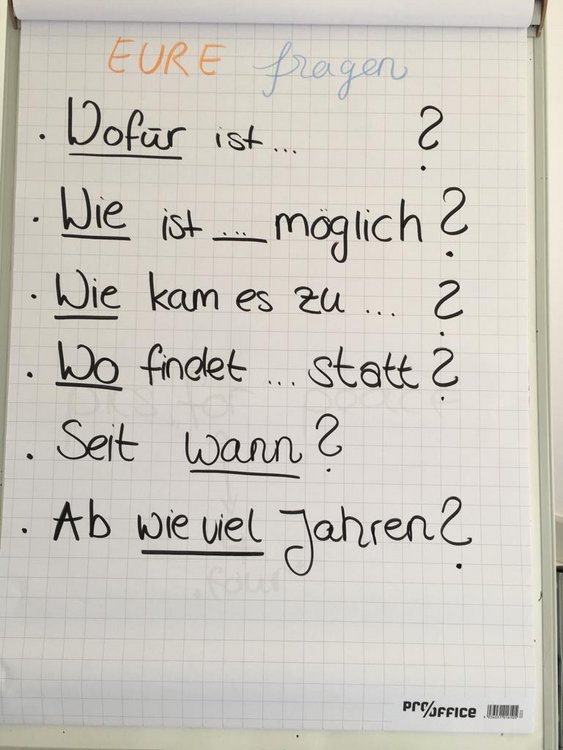 EURE fragen
· Wofür ist... ?
· Wie ist ... möglich?
· Wie kam es zu ... ?
· Wo findet ... statt?
· Seit wann?
· Ab wie viel Jahren?
PRO/OFFICE